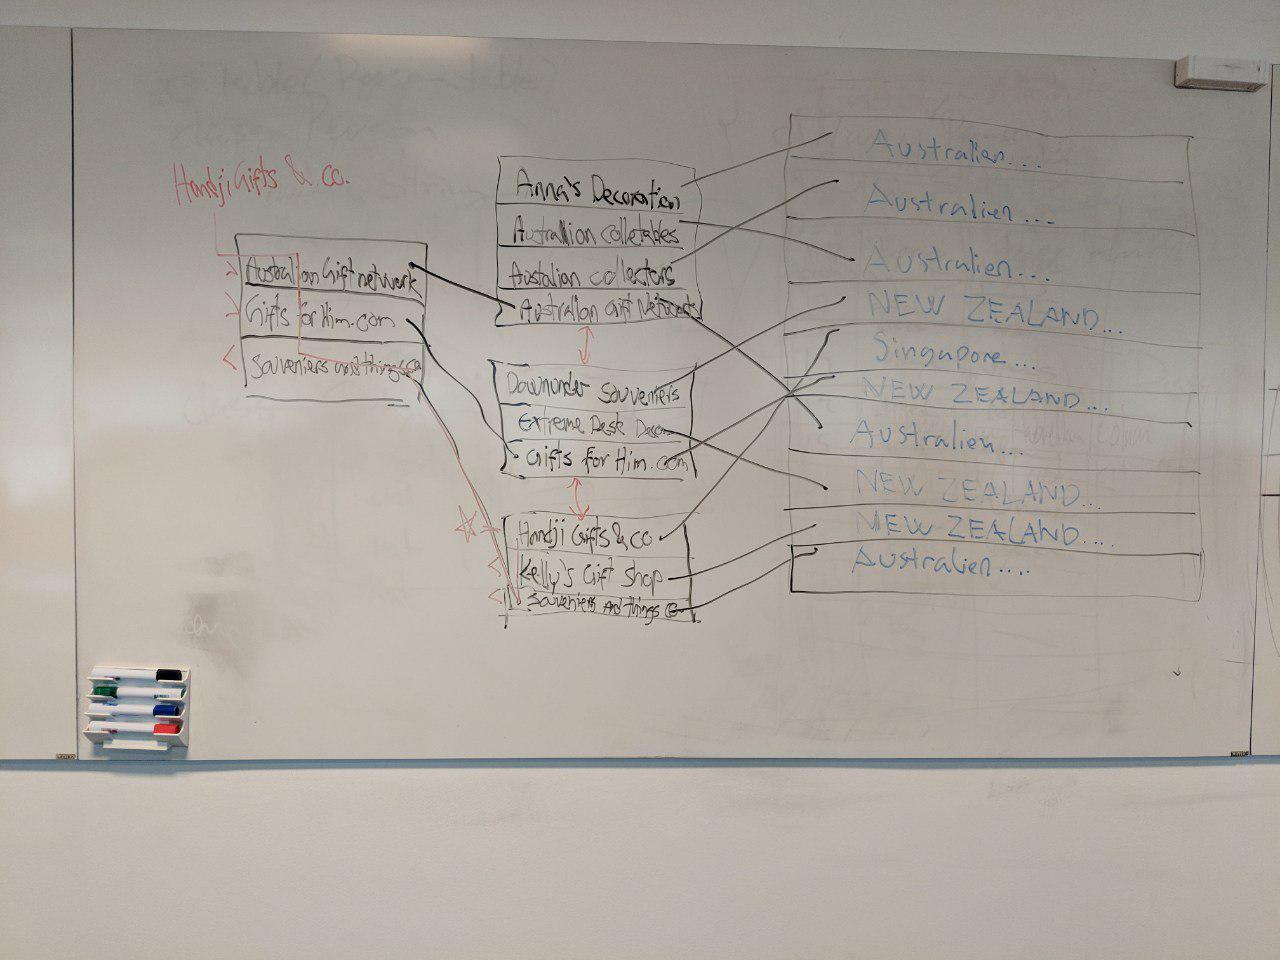 Handji Gifts & co.
Australian Gift network
Gifts for Him.com
Souveniers and things co
Anna's Decoration
Australlian colletables
Austalian collectors
Australian Gift Networks
Downunder Souveniers
Extreme Desk
Gifts for Him.com
Handji Gifts & co
Kelly's Gift Shop
Souveniers And things co
Australien....
Australien....
Australien...
NEW ZEALAND...
Singapore...
NEW ZEALAND...
Australien...
NEW ZEALAND...
NEW ZEALAND....
Australien....